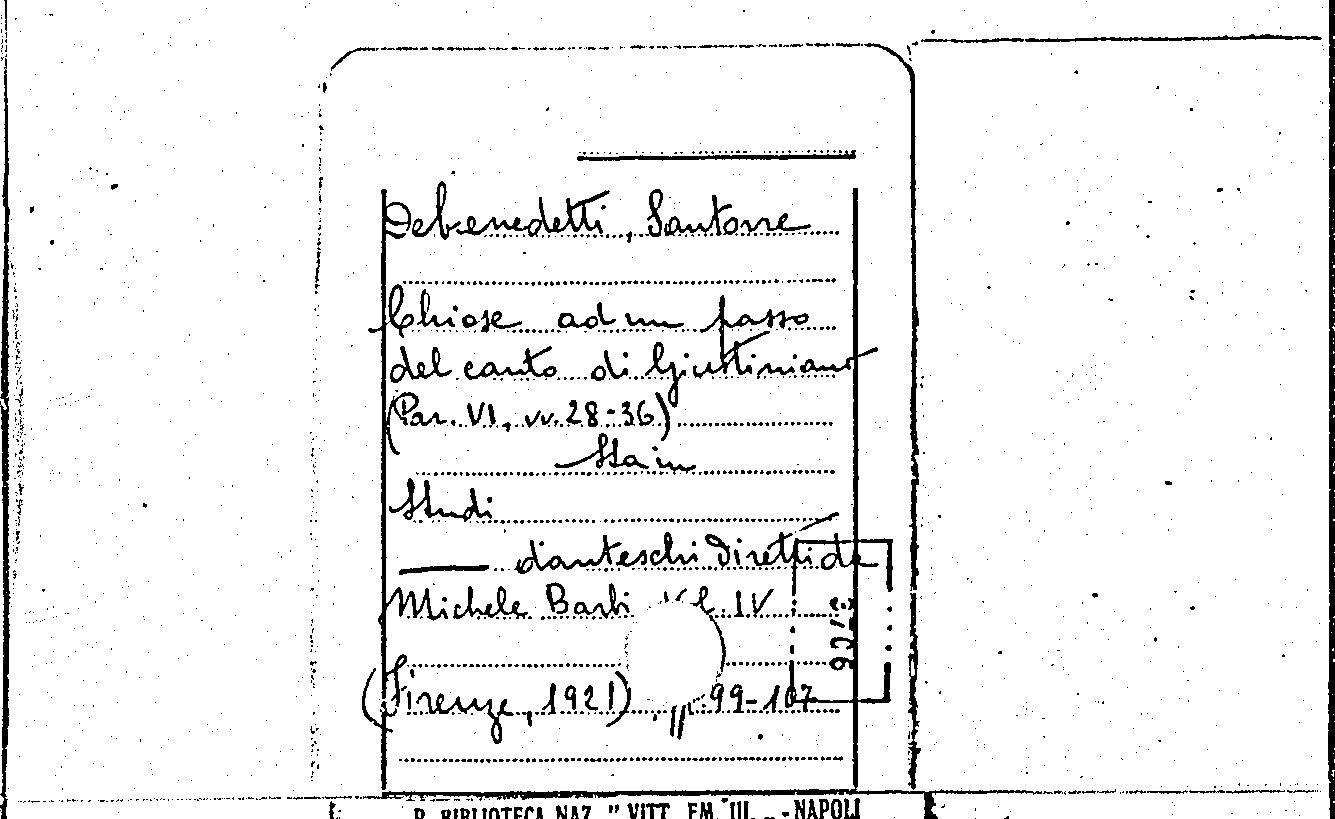 Debenedetti, Santorre
Chiose ad un passo
del canto di Giustiniano
(Par. VI, vv. 28-36)
Sta in
Studi
danteschi diretti da
Michele Barbi Vol. IV
(Firenze, 1921) pp. 99-107
R. BIBLIOTECA NAZ. "VITT. EM. III. - NAPOLI